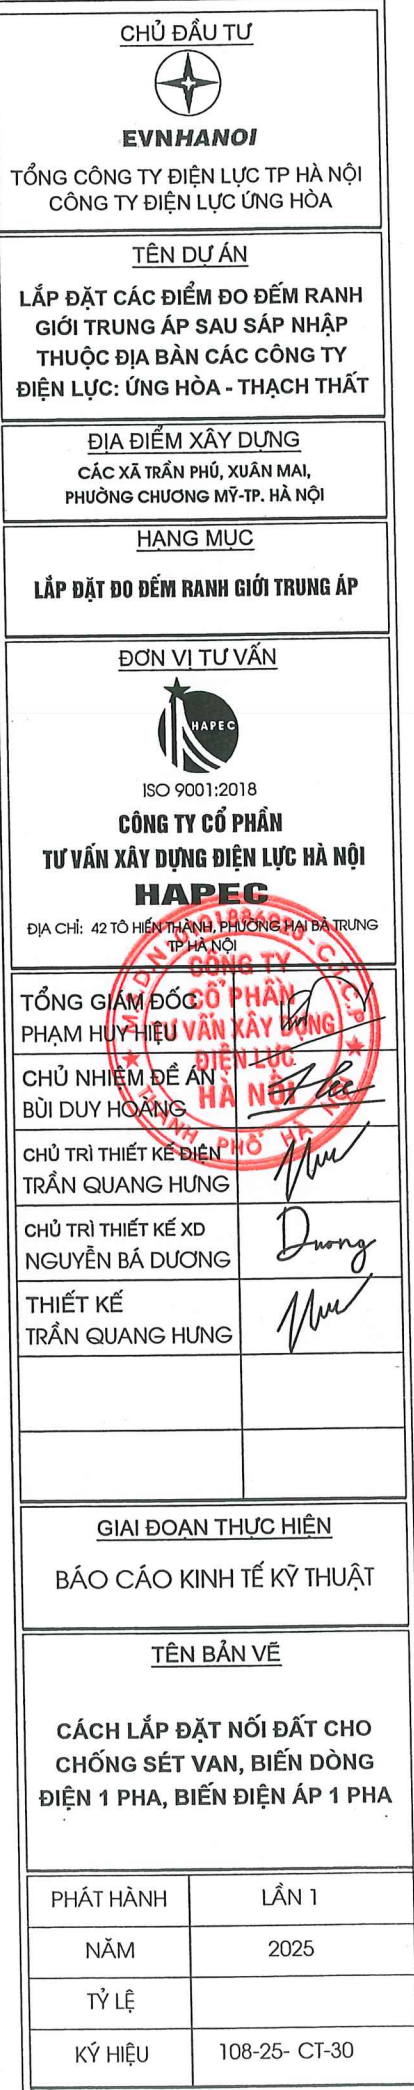 CHỦ ĐẦU TƯ
EVNHANOI
TỔNG CÔNG TY ĐIỆN LỰC TP HÀ NỘI
CÔNG TY ĐIỆN LỰC ỨNG HÒA
TÊN DỰ ÁN
LẮP ĐẶT CÁC ĐIỂM ĐO ĐẾM RANH
GIỚI TRUNG ÁP SAU SÁP NHẬP
THUỘC ĐỊA BÀN CÁC CÔNG TY
ĐIỆN LỰC: ỨNG HÒA - THẠCH THẤT
ĐỊA ĐIỂM XÂY DỰNG
CÁC XÃ TRẦN PHÚ, XUÂN MAI,
PHƯỜNG CHƯƠNG MỸ-TP. HÀ NỘI
HẠNG MỤC
LẮP ĐẶT ĐO ĐẾM RANH GIỚI TRUNG ÁP
ĐƠN VỊ TƯ VẤN
HAPEC
ISO 9001:2018
CÔNG TY CỔ PHẦN
TƯ VẤN XÂY DỰNG ĐIỆN LỰC HÀ NỘI
HAPEC
ĐỊA CHỈ: 42 TÔ HIẾN THÀNH, PHƯỜNG HAI BÀ TRƯNG
TP HÀ NỘI
CÔNG TY
CỔ PHẦN
TƯ VẤN XÂY DỰNG
ĐIỆN LỰC
HÀ NỘI
THÀNH PHỐ HÀ NỘI
TỔNG GIÁM ĐỐC
PHẠM HUY HIỆU
CHỦ NHIỆM ĐỀ ÁN
BÙI DUY HOÀNG
CHỦ TRÌ THIẾT KẾ ĐIỆN
TRẦN QUANG HƯNG
CHỦ TRÌ THIẾT KẾ XD
NGUYỄN BÁ DƯƠNG
Duong
THIẾT KẾ
TRẦN QUANG HƯNG
GIAI ĐOẠN THỰC HIỆN
BÁO CÁO KINH TẾ KỸ THUẬT
TÊN BẢN VẼ
CÁCH LẮP ĐẶT NỐI ĐẤT CHO
CHỐNG SÉT VAN, BIẾN DÒNG
ĐIỆN 1 PHA, BIẾN ĐIỆN ÁP 1 PHA
PHÁT HÀNH LẦN 1
NĂM 2025
TỶ LỆ
KÝ HIỆU 108-25- CT-30